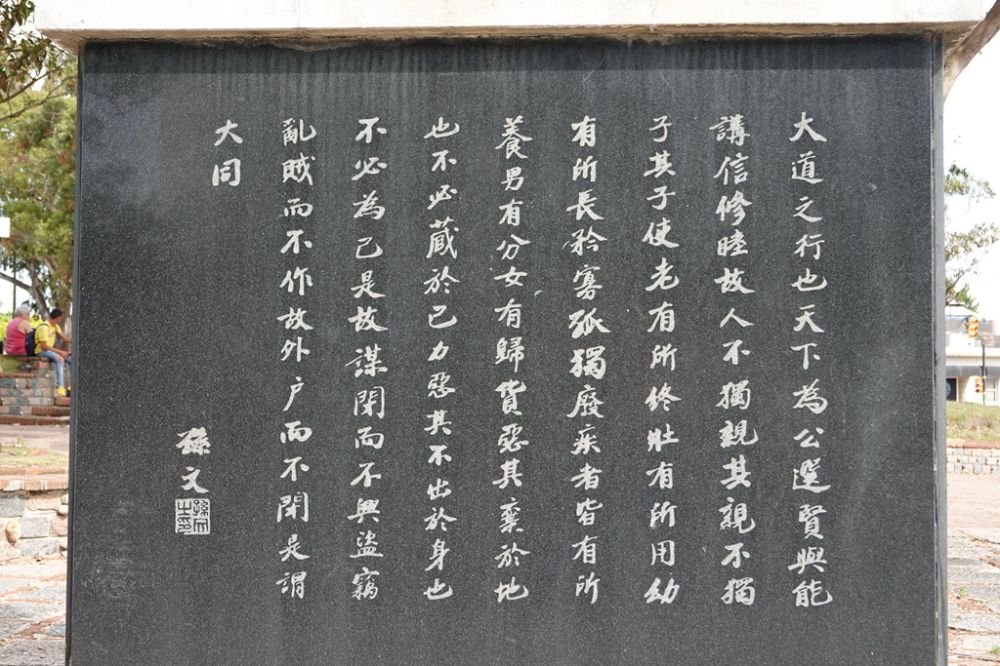 大道之行也天下為公選賢與能
講信修睦故人不獨親其親不獨
子其子使老有所終壯有所用幼
有所長矜寡孤獨廢疾者皆有所
養男有分女有歸貨惡其棄於地
也不必藏於己力惡其不出於身也
不必為己是故謀閉而不興盜竊
亂賊而不作故外戶而不閉是謂
大同
孫文
孫文之印